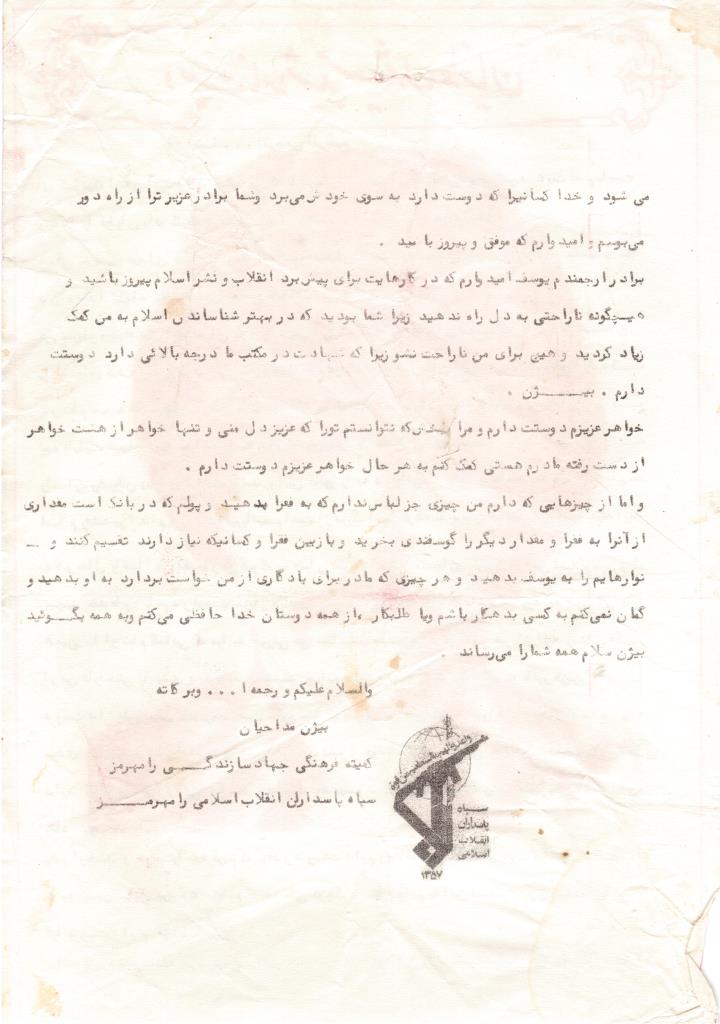 می شود و خدا کسانیرا که دوست دارد به سوی خودش می‌برد وشما برادر عزیز ترا از راه دور
می‌بوسم و امیدوارم که موفق و پیروز باشید .
برادر ارجمندم یوسف امیدوارم که در کارهایت برای پیش‌برد انقلاب و نشر اسلام پیروز باشید و
هیچگونه ناراحتی به دل راه ندهید زیرا شما بودید که در بهتر شناساندن اسلام به من کمک
زیاد کردید و هیچ برای من ناراحت نشو زیرا که شهادت در مکتب ما درجه بالائی دارد دوستت
دارم . بیـــژن .
خواهر عزیزم دوستت دارم و مرا ببخش‌که نتوانستم تورا که عزیز دل منی و تنها خواهر از هست خواهر
از دست رفته مادرم هستی کمک کنم به هر حال خواهر عزیزم دوستت دارم .
و اما از چیزهایی که دارم من چیزی جز لباس‌ندارم که به فقرا بدهید و پولم که در بانک است مقداری
از آنرا به فقرا و مقدار دیگر را گوسفندی بخرید و بازبین فقرا و کسانیکه نیاز دارند تقسیم کنند و ــ
نوارهایم را به یوسف بدهید و هر چیزی که مادر برای یادگاری از من خواست بردارد به او بدهید و
گمان نمی‌کنم به کسی بدهکار باشم ویا طلبکار ،از همه دوستان خدا حافظی می‌کنم وبه همه بگـوئید
بیژن سلام همه شمارا می‌رساند .
والسلام علیکم و رحمه ا . . . وبرکاته
بیژن مداحیان
کمیته فرهنگی جهاد سازندگـــی رامهرمز
سپاه پاسداران انقلاب اسلامی رامهرمـــز
سپاه
پاسداران
انقلاب
اسلامی
۱۳۵۷